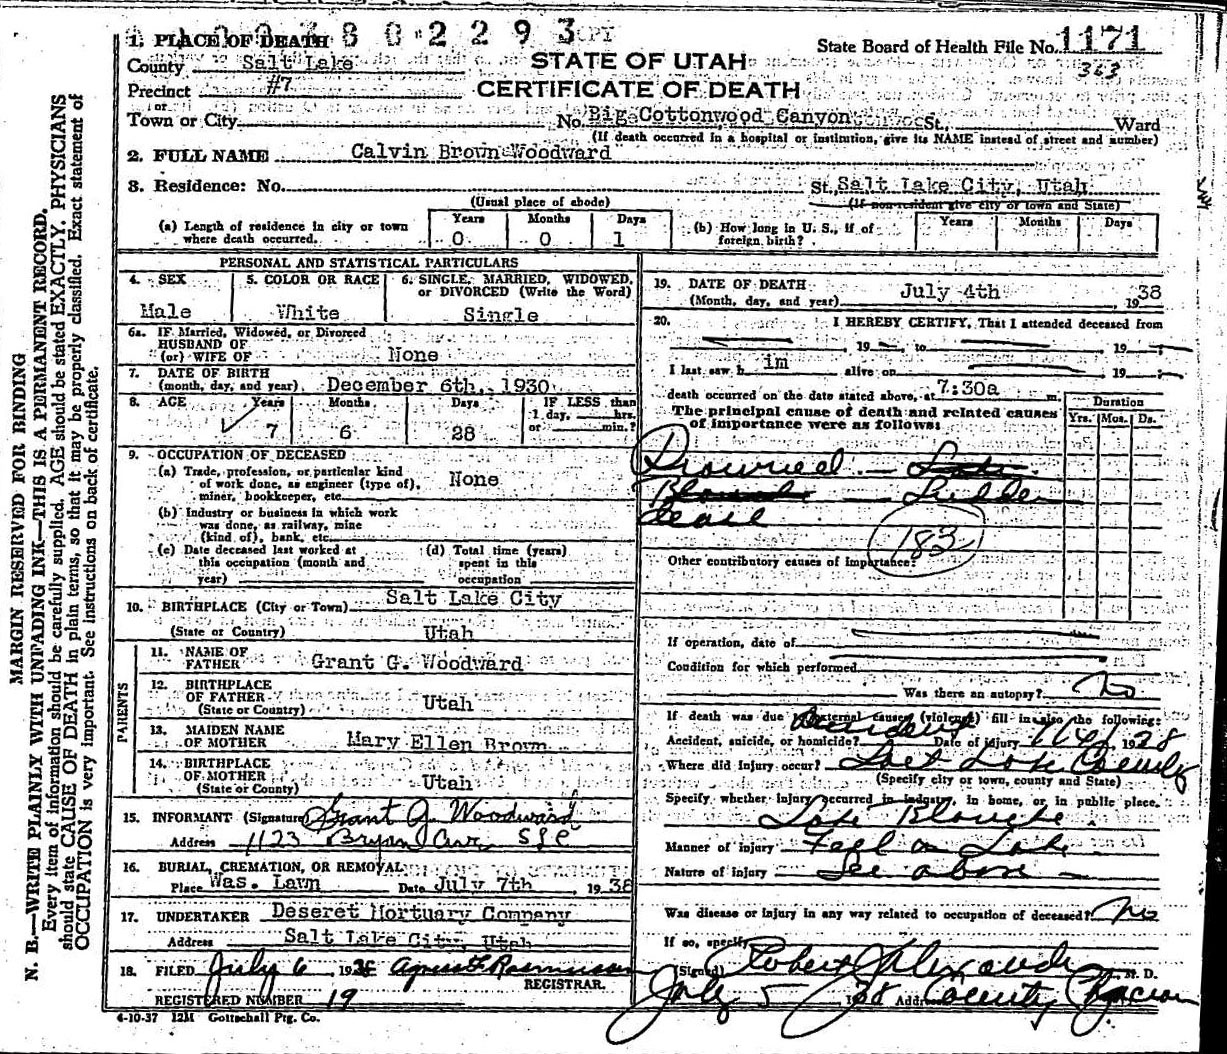 1. PLACE OF DEATH 3 8 0 2 2 9 3
State Board of Health File No. 1171
363
County Salt Lake
STATE OF UTAH
Precinct #7
CERTIFICATE OF DEATH
or
Town or City No. Big Cottonwood Canyon St., Ward
(If death occurred in a hospital or institution, give its NAME instead of street and number)
2. FULL NAME Calvin Brown Woodward
3. Residence: No. St. Salt Lake City, Utah
(Usual place of abode) (If non-resident give city or town and State)
(a) Length of residence in city or town where death occurred. Years 0 Months 0 Days 1
(b) How long in U. S., if of foreign birth? Years Months Days
MARGIN RESERVED FOR BINDING
N. B.—WRITE PLAINLY WITH UNFADING INK—THIS IS A PERMANENT RECORD.
Every item of information should be carefully supplied. AGE should be stated EXACTLY. PHYSICIANS
should state CAUSE OF DEATH in plain terms, so that it may be properly classified. Exact statement of
OCCUPATION is very important. See instructions on back of certificate.
PERSONAL AND STATISTICAL PARTICULARS
4. SEX Male
5. COLOR OR RACE White
6. SINGLE, MARRIED, WIDOWED, or DIVORCED (Write the Word) Single
6a. IF Married, Widowed, or Divorced
HUSBAND OF
(or) WIFE OF None
7. DATE OF BIRTH
(month, day, and year) December 6th, 1930
8. AGE Years 7 Months 6 Days 28
IF LESS than
1 day, hrs.
or min.?
9. OCCUPATION OF DECEASED
(a) Trade, profession, or particular kind
of work done, as engineer (type of),
miner, bookkeeper, etc. None
(b) Industry or business in which work
was done, as railway, mine
(kind of), bank, etc.
(c) Date deceased last worked at
this occupation (month and
year)
(d) Total time (years)
spent in this
occupation
10. BIRTHPLACE (City or Town) Salt Lake City
(State or Country) Utah
PARENTS
11. NAME OF FATHER Grant G. Woodward
12. BIRTHPLACE OF FATHER
(State or Country) Utah
13. MAIDEN NAME OF MOTHER Mary Ellen Brown
14. BIRTHPLACE OF MOTHER
(State or Country) Utah
15. INFORMANT (Signature) Grant G. Woodward
Address 1123 Bryan Ave. SLC
16. BURIAL, CREMATION, OR REMOVAL
Place Was. Lawn Date July 7th, 1938
17. UNDERTAKER Deseret Mortuary Company
Address Salt Lake City, Utah
18. FILED July 6 1938 Rasmussen
REGISTRAR.
REGISTERED NUMBER 19
4-10-37 12M Gottschall Ptg. Co.
19. DATE OF DEATH
(Month, day, and year) July 4th 1938
20. I HEREBY CERTIFY, That I attended deceased from
19 , to , 19 ;
I last saw h im alive on , 19 ;
death occurred on the date stated above, at 7:30a m.
The principal cause of death and related causes
of importance were as follows:
Duration
Yrs. Mos. Ds.
Drowned — Lake
Blanche — Sudden
death
183
Other contributory causes of importance:
If operation, date of
Condition for which performed
Was there an autopsy? No
If death was due to external causes (violence) fill in also the following:
Accident, suicide, or homicide? Accident Date of injury 7/4/ 1938
Where did injury occur? Salt Lake County
(Specify city or town, county and State)
Specify whether injury occurred in industry, in home, or in public place.
Lake Blanche
Manner of injury Fell in Lake
Nature of injury See above
Was disease or injury in any way related to occupation of deceased? No
If so, specify
(Signed) Robert Alexander M. D.
July 5 1938 Address County Physician